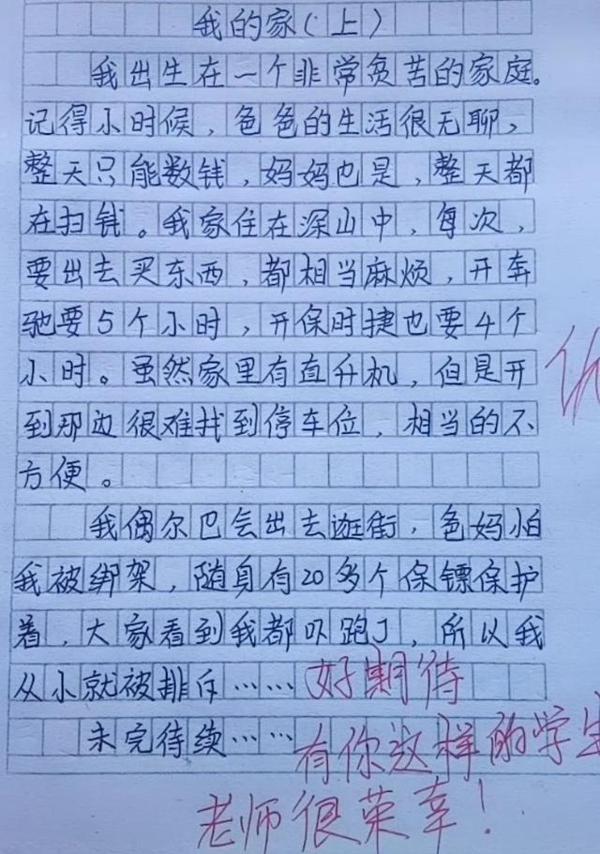 我的家(上)
我出生在一个非常贫苦的家庭。
记得小时候，爸爸的生活很无聊，
整天只能数钱，妈妈也是，整天都
在扫钱。我家住在深山中，每次，
要出去买东西，都相当麻烦，开奔
驰要5个小时，开保时捷也要4个
小时。虽然家里有直升机，但是开
到那边很难找到停车位，相当的不
方便。
我偶尔巴会出去逛街，爸妈怕
我被绑架，随身有20多个保镖保护
着，大家看到我都吓跑了，所以我
从小就被排斥……好期待
未完待续……有你这样的学生
老师很荣幸！